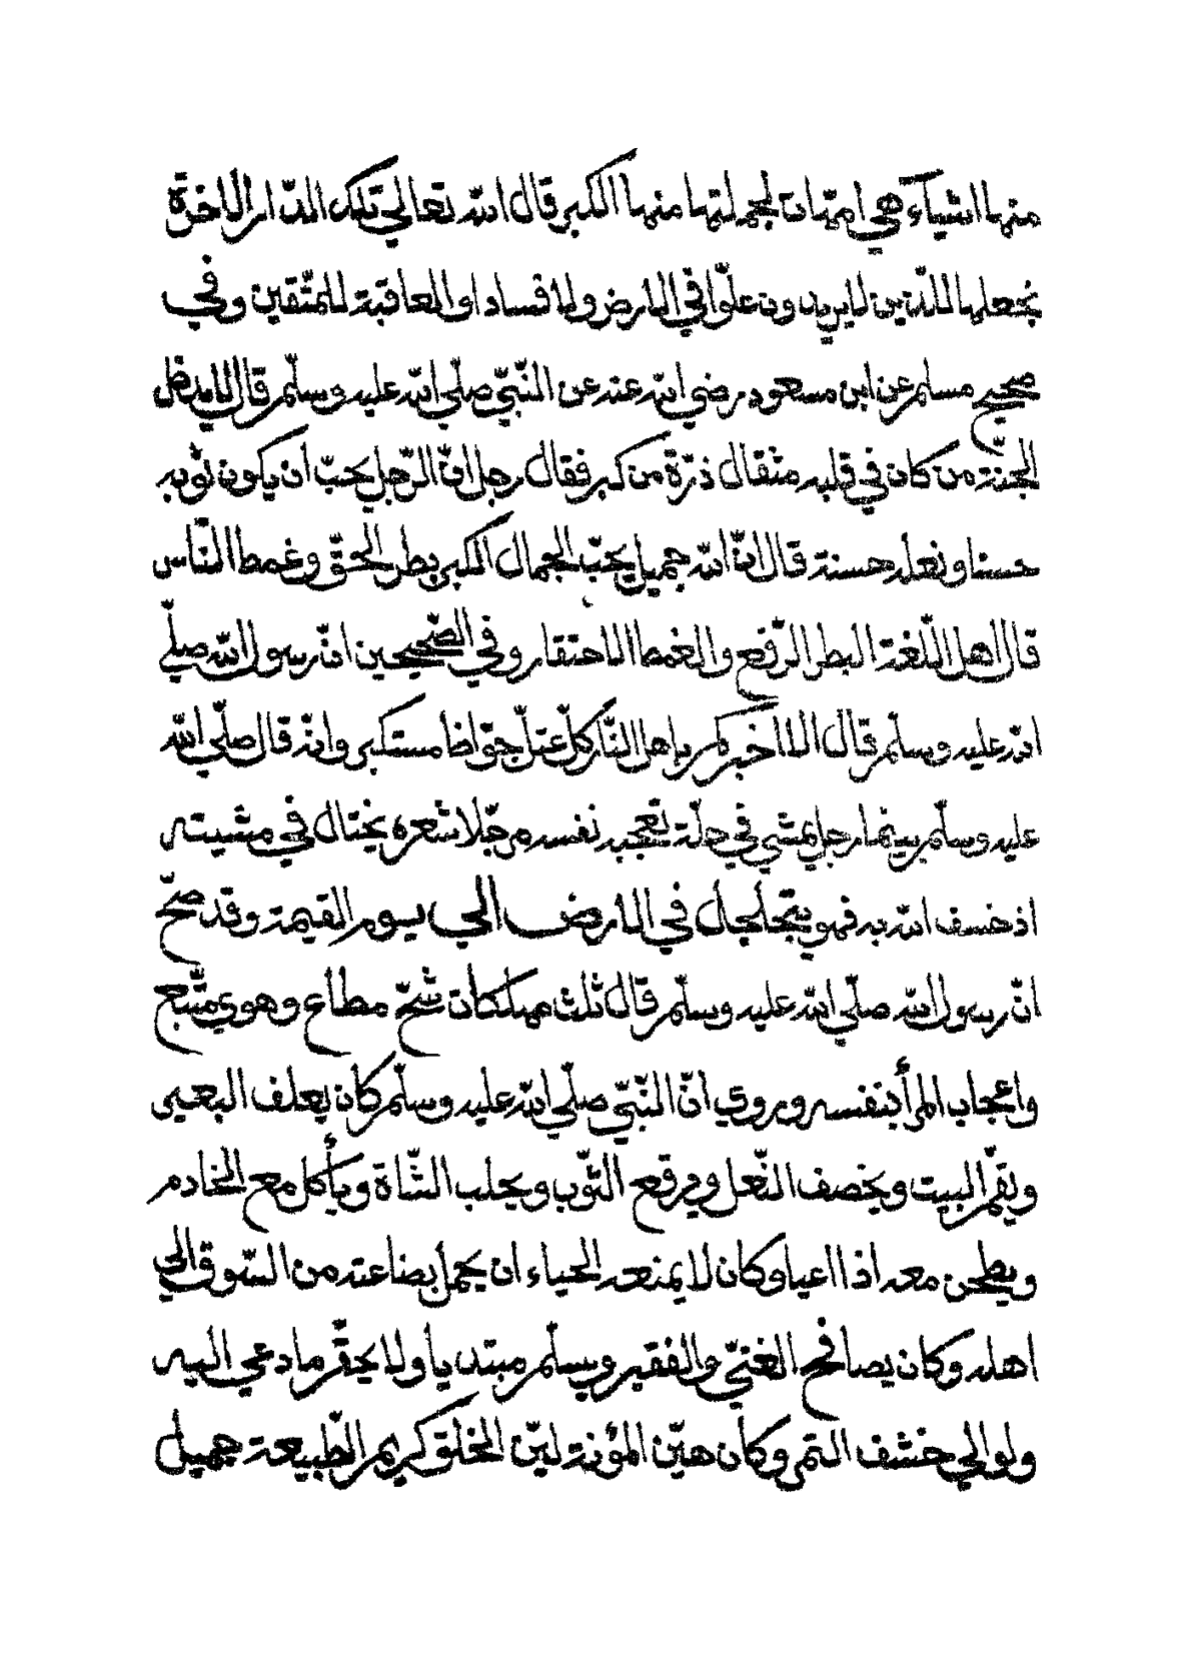 منها اشياء هي امّهات لجملتها منها الكبر قال الله تعالي تلك الدّار الاخرة
نجعلها للذين لايريدون علوّا في الارض ولا فسادا والعاقبة للمتّقين وفي
صحيح مسلم عن ابن مسعود رضي الله عنه عن النّبيّ صلّي الله عليه وسلّم قال لايدخل
الجنة من كان في قلبه مثقال ذرّة من كبر فقال رجل انّ الرّجل يحبّ ان يكون ثوبه
حسنا ونعله حسنة قال انّ الله جميل يحبّ الجمال الكبر بطر الحقّ وغمط النّاس
قال اهل اللّغة البطر الرّفع والغمط الاحتقار وفي الصّحيحين انّ رسول الله صلّي
الله عليه وسلّم قال الا اخبركم باهل النّار كلّ عتلّ جوّاظ مستكبر وانه قال صلّي الله
عليه وسلّم بينما رجل يمشي في حلّة تعجبه نفسه مرجّلا شعره يختال في مشيته
اذ خسف الله به فهو يتجلجل في الارض الي يوم القيمة وقد صحّ
انّ رسول الله صلّي الله عليه وسلّم قال ثلث مهلكات شحّ مطاع وهوي متّبع
واعجاب المرأ بنفسه وروي انّ النّبيّ صلّي الله عليه وسلّم كان يعلف البعير
ويقمّ البيت ويخصف النّعل ويرقع الثّوب ويحلب الشّاة ويأكل مع الخادم
ويطحن معه اذا اعيا وكان لا يمنعه الحياء ان يحمل بضاعته من السّوق الي
اهله وكان يصافح الغنيّ والفقير ويسلّم مبتديا ولا يحقّر ما دعي اليه
ولو الي حشف التمر وكان هيّن المؤنة ليّن الخلق كريم الطّبيعة جميل